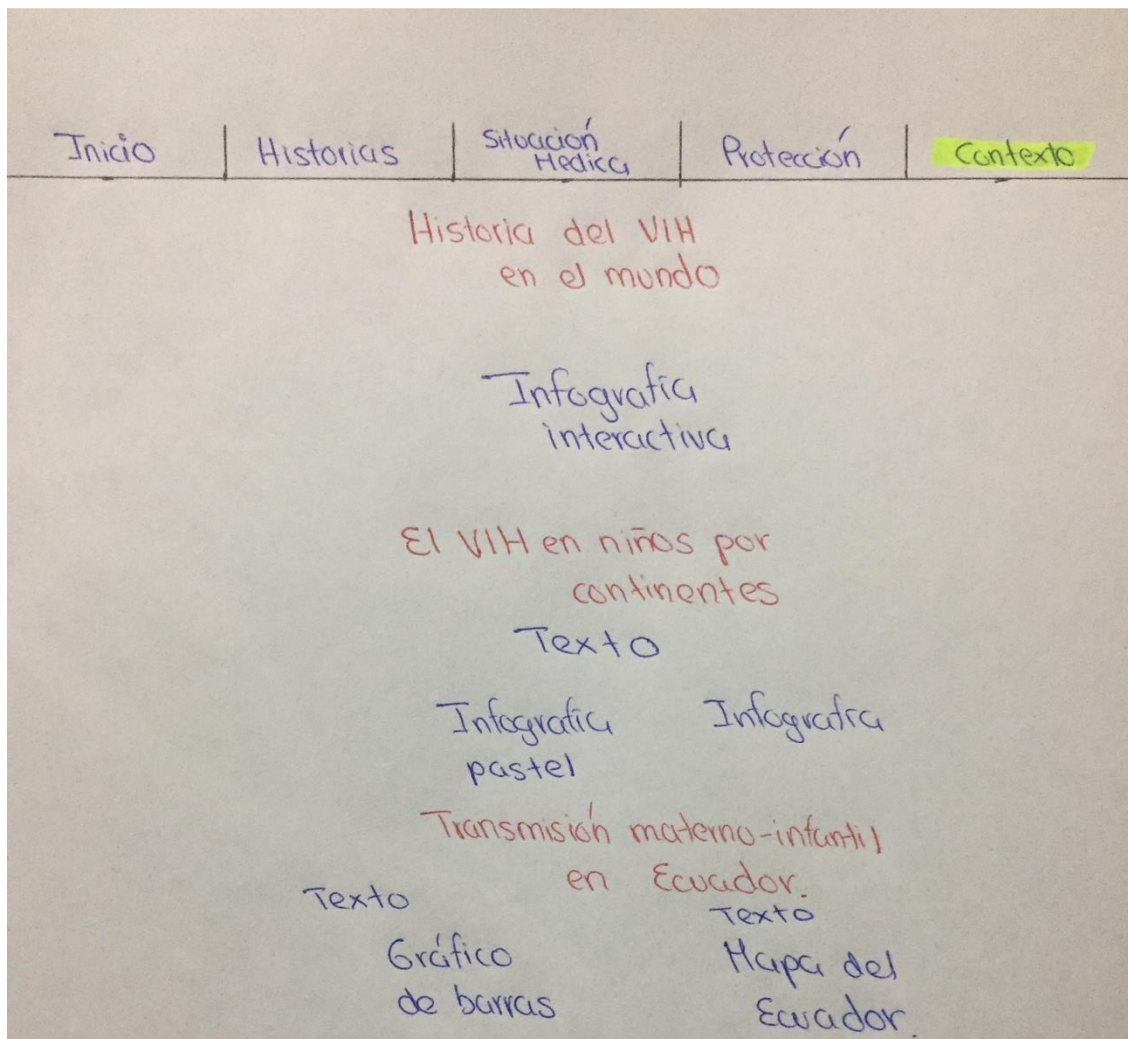 Inicio | Historias | Situación Médica | Protección | Contexto
Historia del VIH
en el mundo
Infografía
interactiva
El VIH en niños por
continentes
Texto
Infografía Infografía
pastel
Transmisión materno-infantil
en Ecuador.
Texto Texto
Gráfico Mapa del
de barras Ecuador.